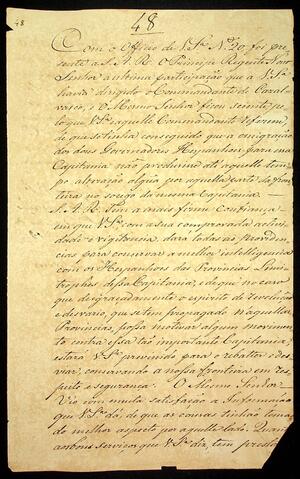 48
48
Com o Officio de V. Sª Nº 20, foi pre-
sente a S. A. R. O Principe Regente Nosso
Senhor a ultima participação que a V. Sª
havia dirigido o Commandante de Cazal-
vasco, e O Mesmo Senhor ficou sciente pe-
lo que V. Sª aquelle Commandante
de que se tinha conseguido que a emigração
dos dous Governadores Hespanhoes para essa
Capitania não produzisse até aquelle tem-
po alteração algũa por aquella parte da fron-
teira no socego da mesma Capitania.
S. A. R. Tem a mais firme confiança
em que V. Sª com a sua comprovada activi-
dade e vigilancia, dará todas as providen-
cias para conservar a melhor intelligencia
com os Hespanhoes das Provincias Limi-
trophes dessa Capitania, e de que no cazo
que desgraçadamente o espirito de revolução
e desvario, que se tem propagado n'aquellas
Provincias, possa motivar algum movimen-
to contra essa tão importante Capitania,
estará V. Sª prevenido para o rebater e des-
viar, conservando a nossa fronteira em res-
peito e segurança. O Mesmo Senhor
Vio com muita satisfação a Informação
que V. Sª dá, de que as couzas tinhão toma-
do melhor aspecto por aquelle lado. Quan-
to aos bons serviços que V. Sª diz, tem presta-